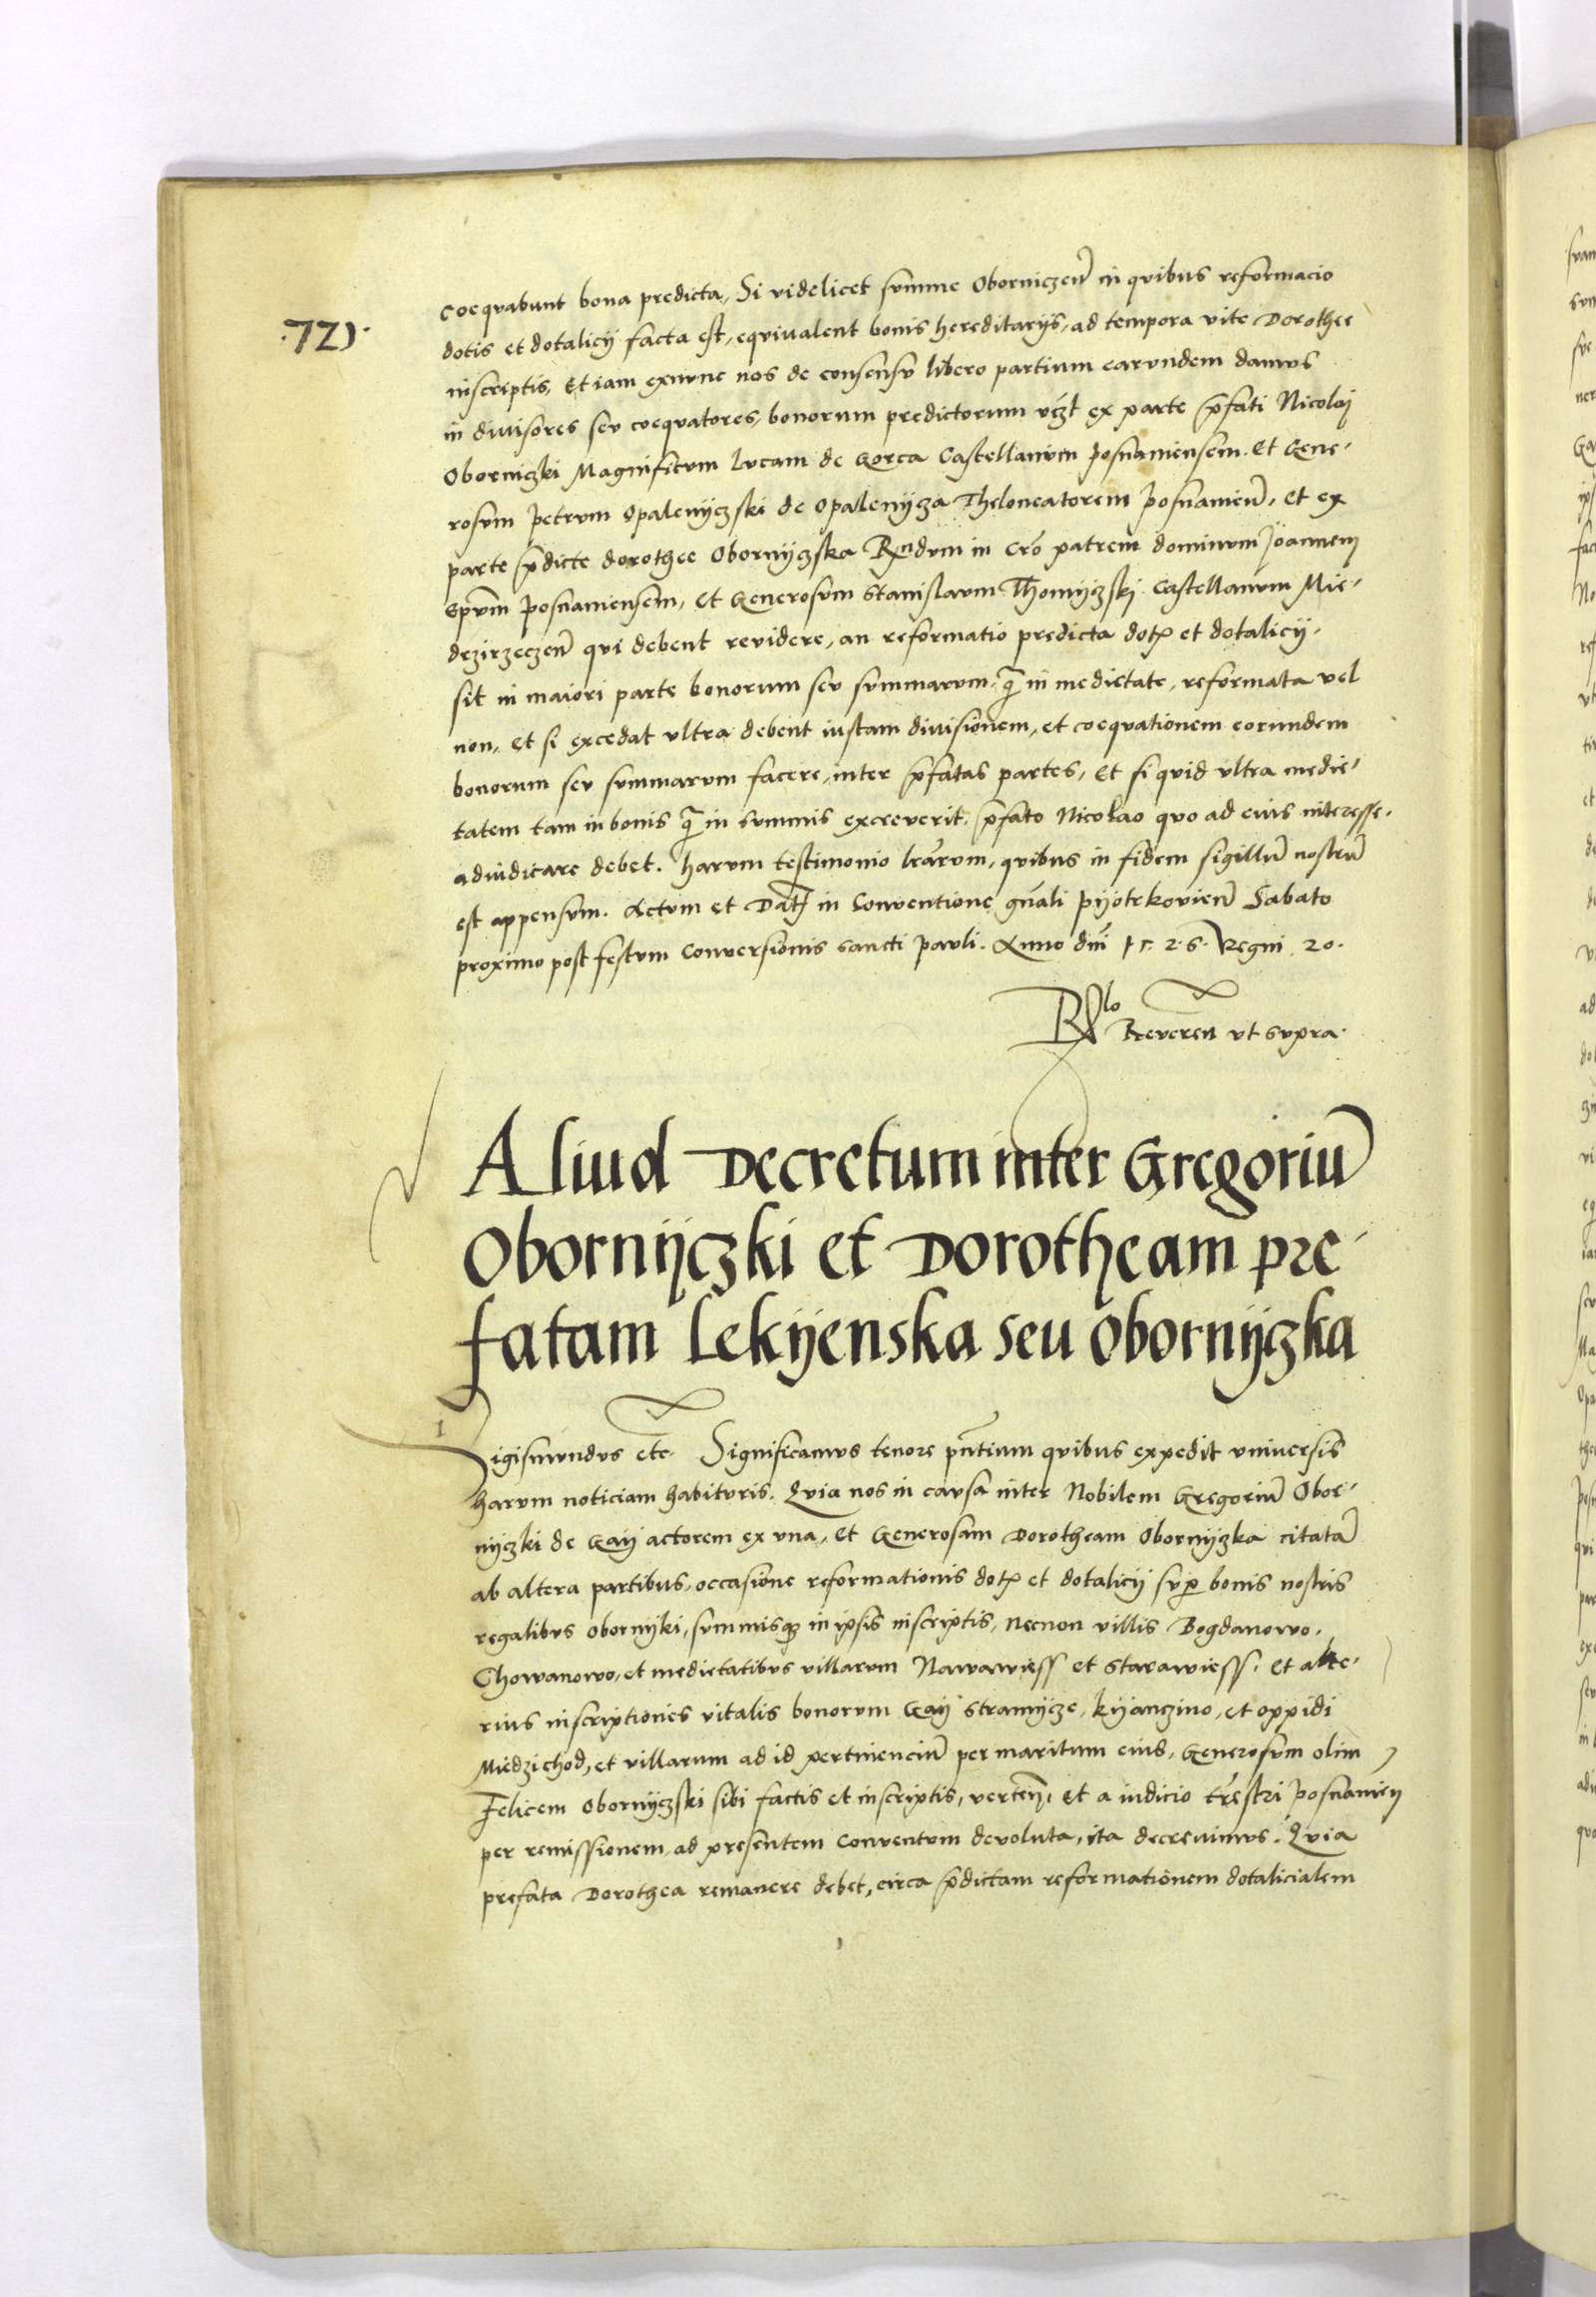 .72).
coequabunt bona predicta, Si videlicet summe Oborniczen̄ in quibus reformacio
dotis et dotalicij facta est, equivalent bonis hereditarijs, ad tempora vite Dorothee
inscriptis, Et iam exnunc nos de consensu libero partium earundem damus
in divisores seu coequatores, bonorum predictorum vcʒt ex parte p̄fati Nicolaj
Oborniczki Magnificum Lucam de Gorca Castellanum Posnaniensem. Et Gene-
rosum Petrum Opalenyczski de Opalenycza Theloneatorem Posnanien̄, Et ex
parte p̄dicte Dorothee Obornyczska Rn̄dum in Cro patrem dominum Joannem
Epum̄ Posnaniensem, Et Generosum Stanislaum Thomyczski Castellanum Mie-
dzirzeczen̄ qui debent revidere, an reformatio predicta dotꝭ et dotalicij.
sit in maiori parte bonorum seu summarum, q̄ in medietate, reformata vel
non, Et si excedat vltra debent iustam divisionem, et coequationem eorundem
bonorum seu summarum facere, inter p̄fatas partes, Et si quid vltra medie-
tatem tam in bonis q̄ in summis excreverit, p̄fato Nicolao quo ad eius interesse.
adiudicare debet. Harum testimonio lr̄arum, quibus in fidem sigillū nostrū
est appensum. Actum et Datꝭ in Conventione gn̄ali Pyotrkovien̄ Sabato
proximo post festum Conversionis Sancti Pauli. Anno dn̄i 1526. Regni 20.
Rlo Reveren̄ vt supra.
Aliud Decretum inter Gregoriū
Obornyczki et Dorotheam pre-
fatam Lekyenska seu Obornyczka
Sigismundus etc. Significamus tenore pn̄tium quibus expedit vniversis
harum noticiam habituris. Quia nos in causa inter Nobilem Gregoriū Obor-
nyczki de Gay actorem ex vna, Et Generosam Dorotheam Obornyczka citatā
ab altera partibus, occasione reformationis dotꝭ et dotalicij sup̱ bonis nostris
regalibus Obornyki, summisqꝫ in ipsis inscriptis, Necnon villis Bogdanowo,
Chowanowo, et medietatibus villarum Nawawiess et Starawiess. Et alte-
rius inscriptiones vitalis bonorum Gay Stramycze, Kyanczino, et oppidi
Miedzichod, et villarum ad id pertinenciū per maritum eius, Generosum olim
Felicem Obornyczski sibi factis et inscriptis, verten̄, Et a iudicio tr̄estri Posnanien̄
per remissionem, ad presentem Conventum devoluta, ita decrevimus. Quia
prefata Dorothea remanere debet, circa p̄dictam reformationem dotalicialem